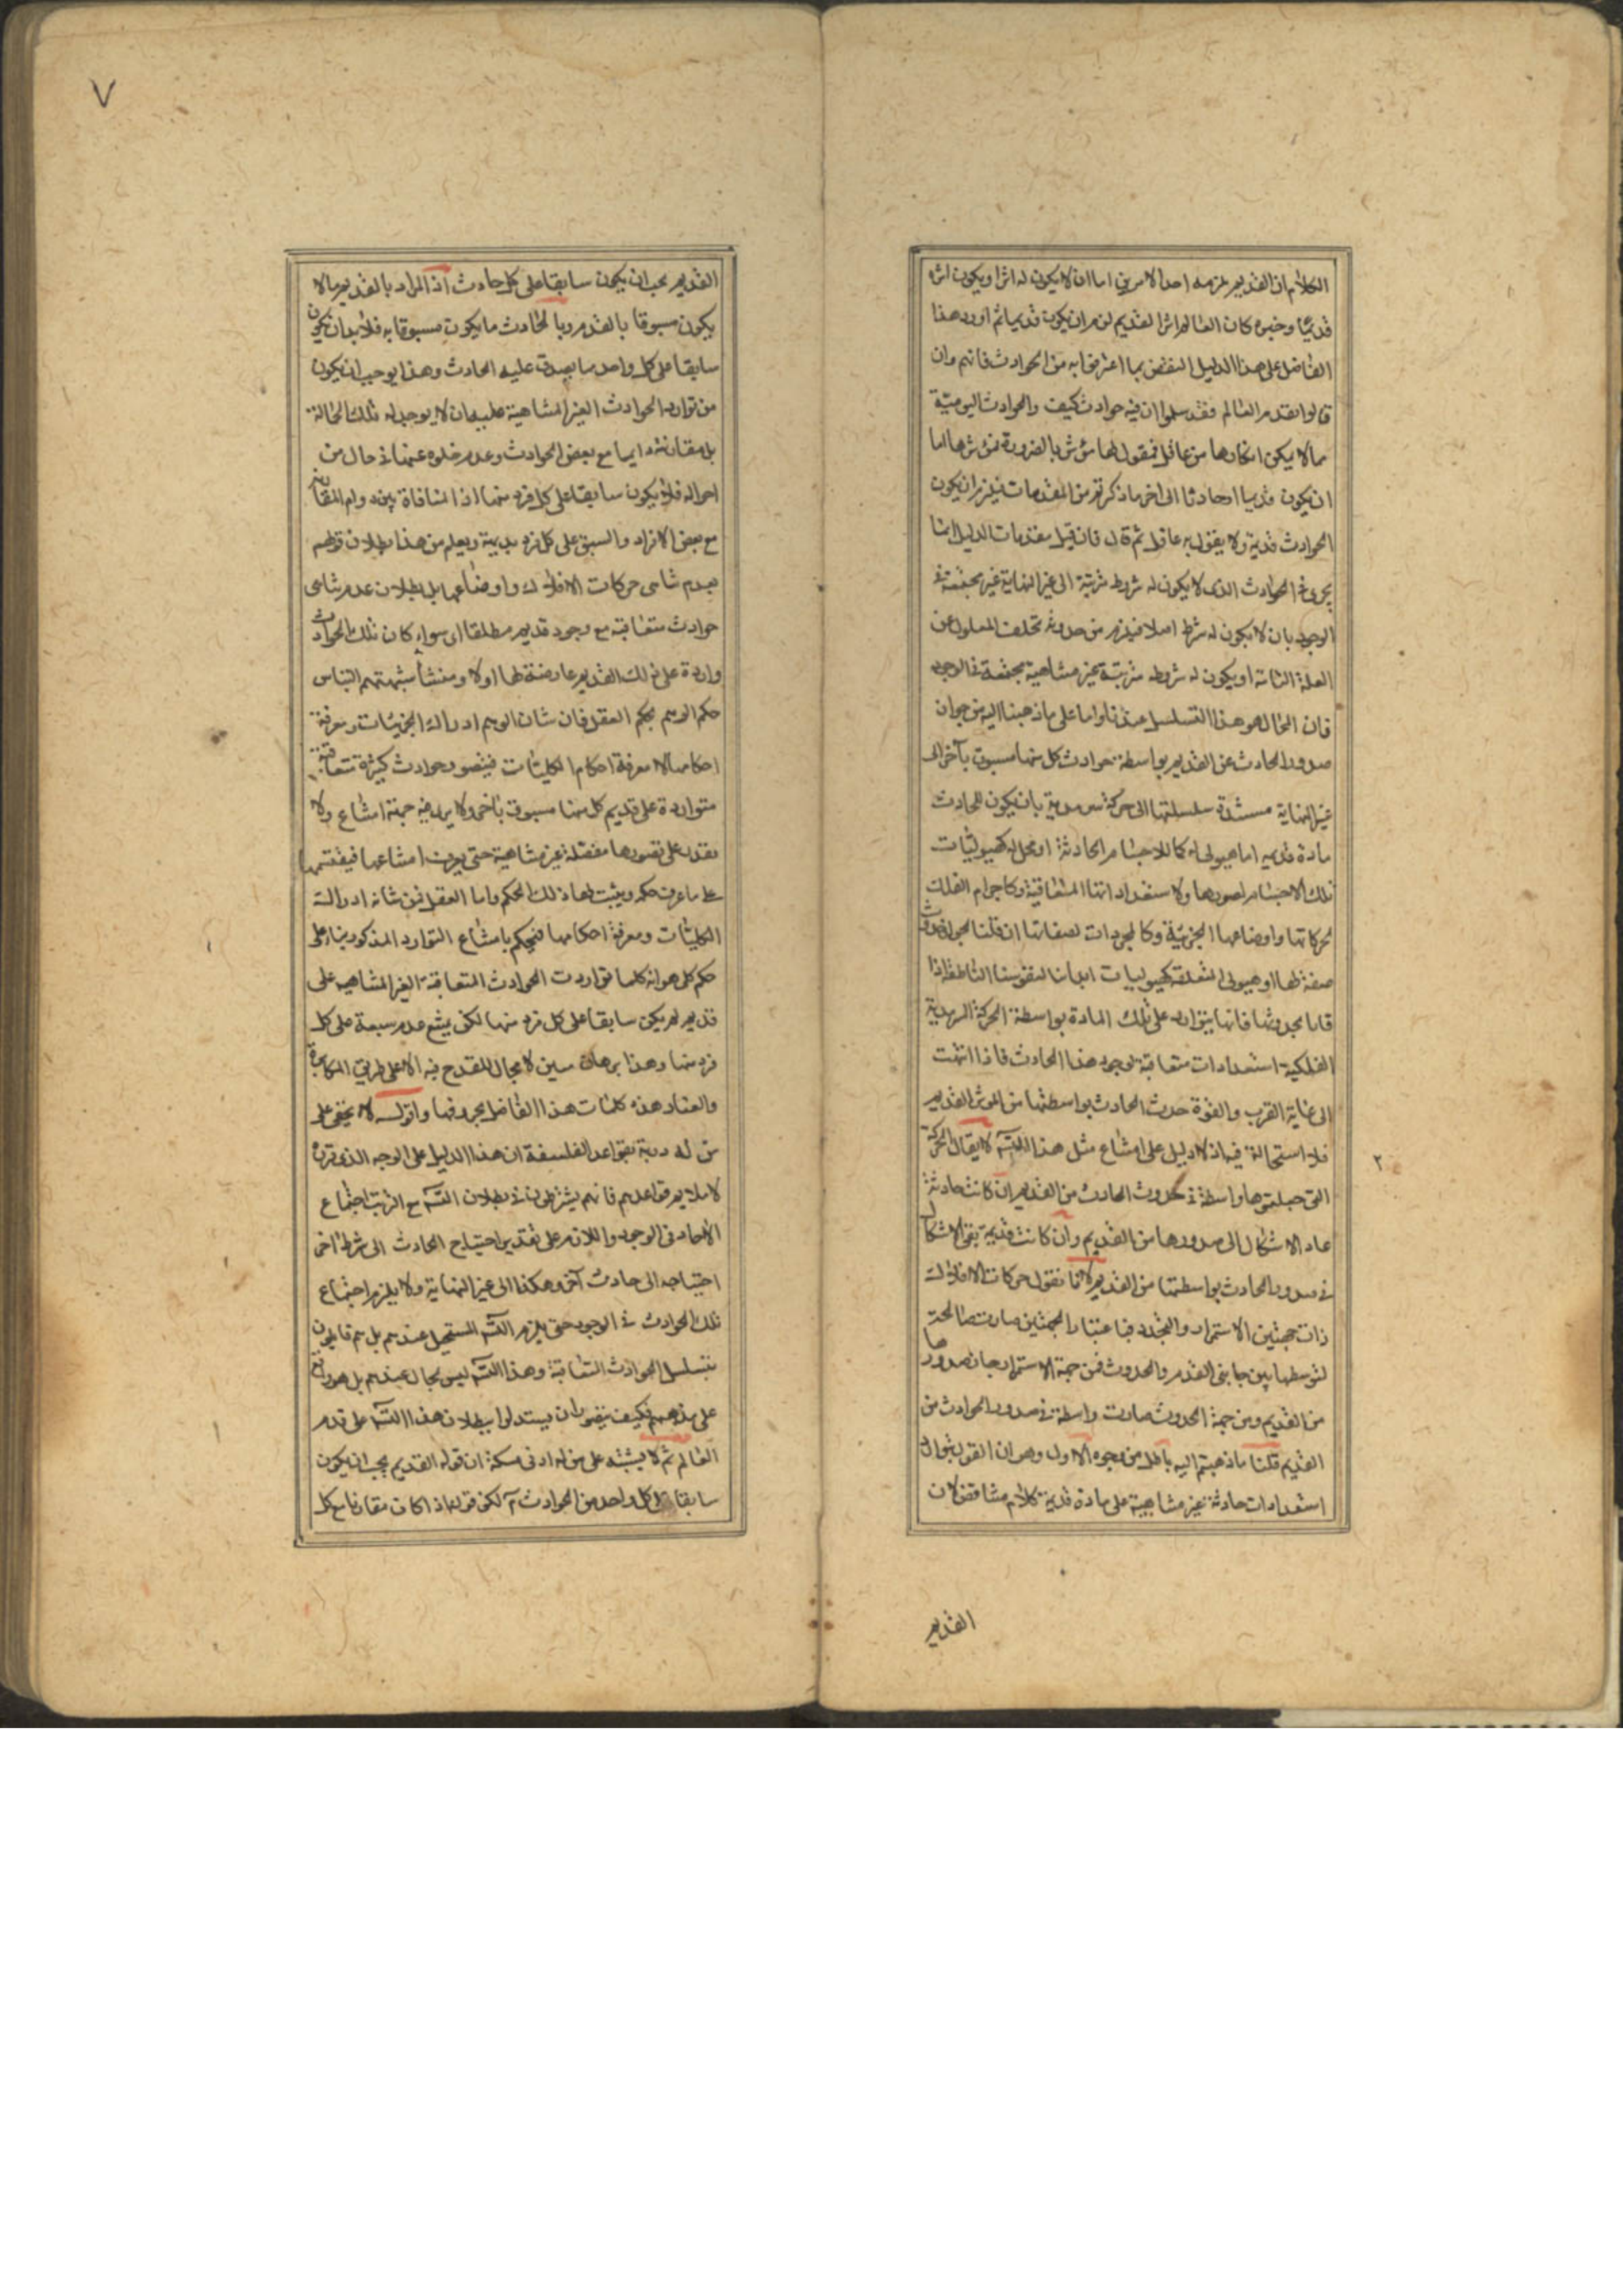 الكلام ان القديم يلزمه احد الامرين اما ان لا يكون له اثر او يكون اثره
قديما وحينئذ كان العالم اثرا لقديم لزم ان يكون قديما ثم اورد هذا
الفاضل على هذا الدليل النقض بما اعترفوا به من الحوادث فانهم وان
قالوا بقدم العالم فقد سلموا ان فيه حوادث كيف والحوادث اليومية
مما لا يمكن انكارها من عاقل فنقول لها مؤثر بالضرورة فمؤثرها اما
ان يكون قديما او حادثا الى اخر ما ذكرتم من المقدمات فيلزم ان يكون
الحوادث قديمة ولا يقول به عاقل ثم قال فان قيل مقدمات الدليل انما
يجرى فى الحوادث الذى لا يكون له شروط مترتبة الى غير النهاية غير مجتمعة فى
الوجود بان لا يكون له شرط اصلا فيلزم من حدوثه تخلف المعلول عن
العلة التامة او يكون له شروط مترتبة غير متناهية مجتمعة فى الوجود
فان المحال هو هذا التسلسل عندنا واما على ما ذهبنا اليه من جواز
صدور الحادث عن القديم بواسطة حوادث كل منها مسبوق بآخر الى
غير النهاية مستندة سلسلتها الى حركة سرمدية بان يكون للحادث
مادة قديمة اما هيولى له كما للاجسام الحادثة او محل له كهيوليات
تلك الاجسام لصورها ولاستعداداتها المتعاقبة وكاجرام الفلك
لحركاتها واوضاعها الجزئية وكالمجردات لصفاتها ان قلنا بجواز حدوث
صفة لها او هيولى لمتعلقه كهيوليات ابداننا لنفوسنا الناطقة اذا
قلنا بحدوثها فانها يتوارد على تلك المادة بواسطة الحركة السرمدية
الفلكية استعدادات متعاقبة لوجود هذا الحادث فاذا انتهت
الى غاية القرب والقوة حدث الحادث بواسطتها من المؤثر القديم
فلا استحالة فيه اذ لا دليل على امتناع مثل هذا التسـ لا يقال الحركة
التى جعلتموها واسطة فى حدوث الحادث من القديم ان كانت حادثة
عاد الاشكال الى صدورها من القديم وان كانت قديمة بقى الاشكال
فى صدور الحادث بواسطتها من القديم لانا نقول حركات الافلاك
ذات جهتين الاستمرار والتجدد فباعتبار الجهتين صارت صالحة
لتوسطها بين جانبى القدم والحدوث فمن جهة الاستمرار جاز صدورها
من القديم ومن جهة الحدوث صارت واسطة فى صدور الحوادث من
القديم قلنا ما ذهبتم اليه باطل من وجوه الاول وهو ان القول بتوالى
استعدادات حادثة غير متناهية على مادة قديمة كلام متناقض لان
القديم
٢
٧
القديم يجب ان يكون سابقا على كل حادث اذ المراد بالقديم ما لا
يكون مسبوقا بالعدم وبالحادث ما يكون مسبوقا به فلا بد ان يكون
سابقا على كل واحد مما يصدق عليه الحادث وهذا يوجب ان يكون
من توارد الحوادث الغير المتناهية عليه ان لا يوجد له تلك الحالة
بل مقارنته دايما مع بعض الحوادث وعدم خلوه عنها فى حال من
احواله فلا يكون سابقا على كل فرد منها اذ المنافاة بين دوام المقارنة
مع بعض الافراد والسبق على كل فرد بديهية ويعلم من هذا بطلان قولهم
بعدم تناهى حركات الافلاك واوضاعها بل بطلان عدم تناهى
حوادث متعاقبة مع وجود قديم مطلقا اى سواء كان تلك الحوادث
واردة على ذلك القديم عارضة لها اولا ومنشأ شبهتهم التباس
حكم الوهم بحكم العقل فان شان الوهم ادراك الجزئيات ومعرفة
احكامها لا معرفة احكام الكليات فيتصور حوادث كثيرة متعاقبة
متواردة على قديم كل منها مسبوق بآخر ولا يرى فيه جهة امتناع ولا
يقدر على تصورها مفصلة غير متناهية حتى يعرف امتناعها فيقتصر
على ما عرف حكمه ويثبت لها ذلك الحكم واما العقل فمن شانه ادراك
الكليات ومعرفة احكامها فيحكم بامتناع التوارد المذكور بناء على
حكم كلى هو انه كلما تواردت الحوادث المتعاقبة الغير المتناهية على
قديم لم يكن سابقا على كل فرد منها لكن يمتنع عدم سبقه على كل
فرد منها وهذا برهان مبين لا مجال للقدح فيه الا على طريق المكابرة
والعناد هذه كلمات هذا الفاضل بحروفها واقول لا يخفى على
من له دربة بقواعد الفلسفة ان هذا الدليل على الوجه الذى قرره
لا يلايم قواعدهم فانهم يشترطون فى بطلان التسـ مع الترتب اجتماع
الآحاد فى الوجود واللازم على تقدير احتياج الحادث الى شرط اخر
احتياجه الى حادث آخر وهكذا الى غير النهاية ولا يلزم اجتماع
تلك الحوادث فى الوجود حتى يلزم التسـ المستحيل عندهم بل هم قايلون
بتسلسل الحوادث المتعاقبة وهذا التسـ ليس بمحال عندهم بل هو واقع
على مذهبهم فكيف يتصور ان يستدلوا ببطلان هذا التسـ على قدم
العالم ثم لا يشتبه على من له ادنى مسكة ان قوله القديم يجب ان يكون
سابقا على كل واحد من الحوادث مـ لكن قوله اذا كان مقارنا مع كل